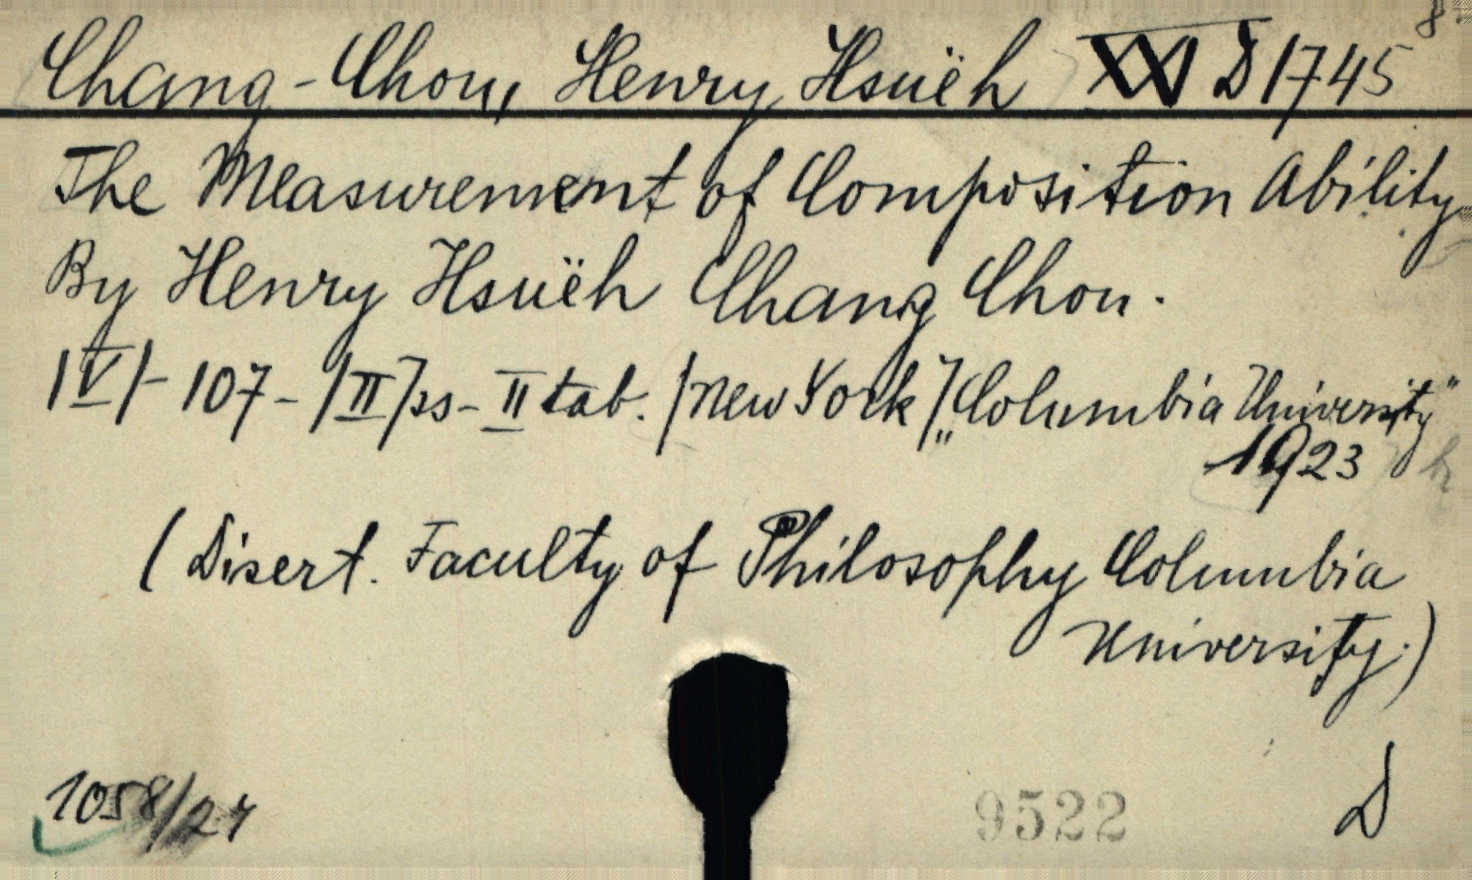 8°
Chang-Chou, Henry Hsüeh XXI D 1745
The Measurement of Composition Ability
By Henry Hsüeh Chang Chou.
/V/- 107 - /II/ ss - II tab. /New York/ „Columbia University"
1923
(Disert. Faculty of Philosophy Columbia
University.)
1058/27
9522
D